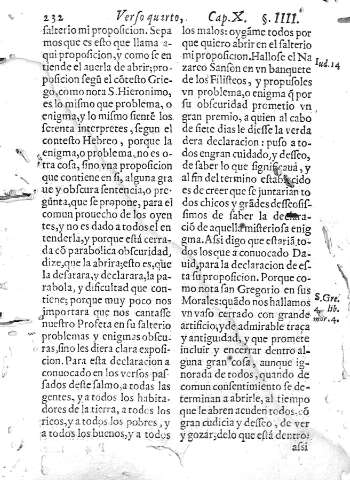 232 Verso quarto, Cap. X. §. IIII.
salterio mi proposicion. Sepa
mos que es esto que llama a-
qui proposicion, y como se en
tiende el auerla de abrir; pro-
posicion segũ el cõtesto Grie-
go, como nota S. Hieronimo,
es lo mismo que problema, o
enigma, y lo mismo siente los
setenta interpretes, segun el
contesto Hebreo, porque la
enigma, o problema, no es o-
tra cosa, sino vna proposicion
que contiene en si, alguna gra
ue y obscura sentencia, o pre-
gũnta, que se propone, para el
comun prouecho de los oyen
tes, y no es dado a todos el en
tenderla, y porque està cerra-
da cõ parabolica obscuridad,
dize, que la abrira: esto es, que
la desatara, y declarara, la pa-
rabola, y dificultad que con-
tiene; porque muy poco nos
importara que nos cantasse
nuestro Profeta en su salterio
problemas y enigmas obscu-
ras, sino les diera clara exposi
cion. Para esta declaracion a
conuocado en los versos pas-
sados deste salmo, a todas las
gentes, y a todos los habita-
dores de la tierra, a todos los
ricos, y a todos los pobres, y
a todos los buenos, y a todos
los malos: oygãme todos por
que quiero abrir en el salterio
mi proposicion. Hallose el Na
zarco Sanson en vn banquete
de los Filisteos, y propusoles
vn problema, o enigma q̃ por
su obscuridad prometio vn
gran premio, a quien al cabo
de siete dias le diesse la verda
dera declaracion: puso a to-
dos en gran cuidado, y desseo,
de saber lo que significaua, y
al fin del termino establecido
es de creer que se juntarian to
dos chicos y grãdes desseosis-
simos de saber la declara-
ciõ de aquella misteriosa enig
ma. Assi digo que estariã to-
dos los que a conuocado Da-
uid, para la declaracion de es-
ta su proposicion. Porque co-
mo nota san Gregorio en sus
Morales: quãdo nos hallamos
vn vaso cerrado con grande
artificio, y de admirable traça
y antiguidad, y que promete
incluir y encerrar dentro al-
guna gran cosa, aunque ig-
norada de todos, quando de
comun consentimiento se de-
terminan a abrirle, al tiempo
que le abren acuden todos, cõ
gran cudicia y desseo, de ver
y gozar, de lo que està dentro:
assi
Iud. 14
S. Gre.
lib.
mor. 4.